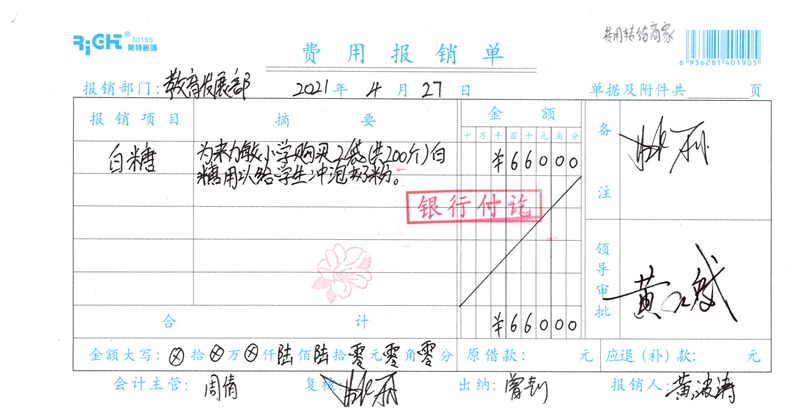 RiGHT 3015S 莱特画湖
费用报销单
费用转给商家
6 936281 401905
报销部门：教育发展部 2021 年 4 月 27 日 单据及附件共 页
报销项目 摘要 金额 备注
十 万 千 百 十 元 角 分
白糖 为来力敏小学购买2袋(共200斤)白 ¥66000
糖用以给学生冲泡奶粉。
银行付讫
领导审批
合计 ¥66000
金额大写：⊗ 拾 ⊗ 万 ⊗ 仟 陆 佰 陆 拾 零 元 零 角 零 分 原借款： 元 应退（补）款： 元
会计主管：周倩 复核： 出纳： 报销人：黄波涛